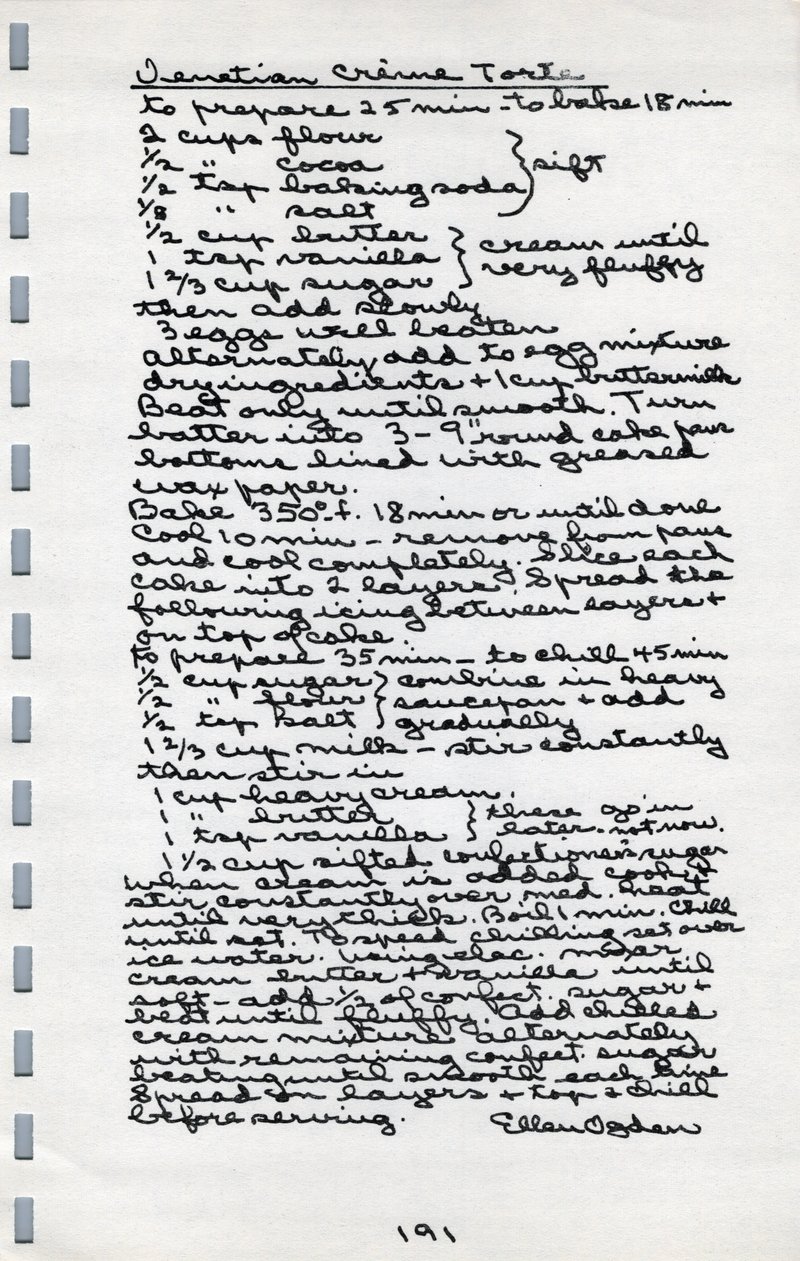 Venetian Crème Torte
to prepare 25 min - to bake 18 min
2 cups flour
1/2 " cocoa } sift
1/2 tsp baking soda
1/8 " salt
1/2 cup butter } cream until
1 tsp vanilla } very fluffy
1 2/3 cup sugar
then add slowly
3 eggs well beaten
alternately add to egg mixture
dry ingredients + 1 cup buttermilk
Beat only until smooth. Turn
batter into 3 - 9" round cake pans
bottoms lined with greased
wax paper.
Bake 350° f. 18 min or until done
Cool 10 min - remove from pans
and cool completely. Slice each
cake into 2 layers. Spread the
following icing between layers +
on top of cake.
to prepare 35 min - to chill 45 min
1/2 cup sugar } combine in heavy
1/2 " flour } saucepan + add
1/2 tsp salt } gradually
1 2/3 cup milk - stir constantly
then stir in
1 cup heavy cream.
1 " butter } these go in
1 tsp vanilla } later. not now.
1 1/2 cup sifted confectioner's sugar
When cream is added cook +
stir constantly over med. heat
until very thick. Boil 1 min. Chill
until set. To speed chilling set over
ice water. Using elec. mixer
cream butter + vanilla until
soft - add 1/2 of confect. sugar +
beat until fluffy. Add chilled
cream mixture alternately
with remaining confect. sugar
beating until smooth each time
Spread on layers + top + chill
before serving. Ellen Ogden
191